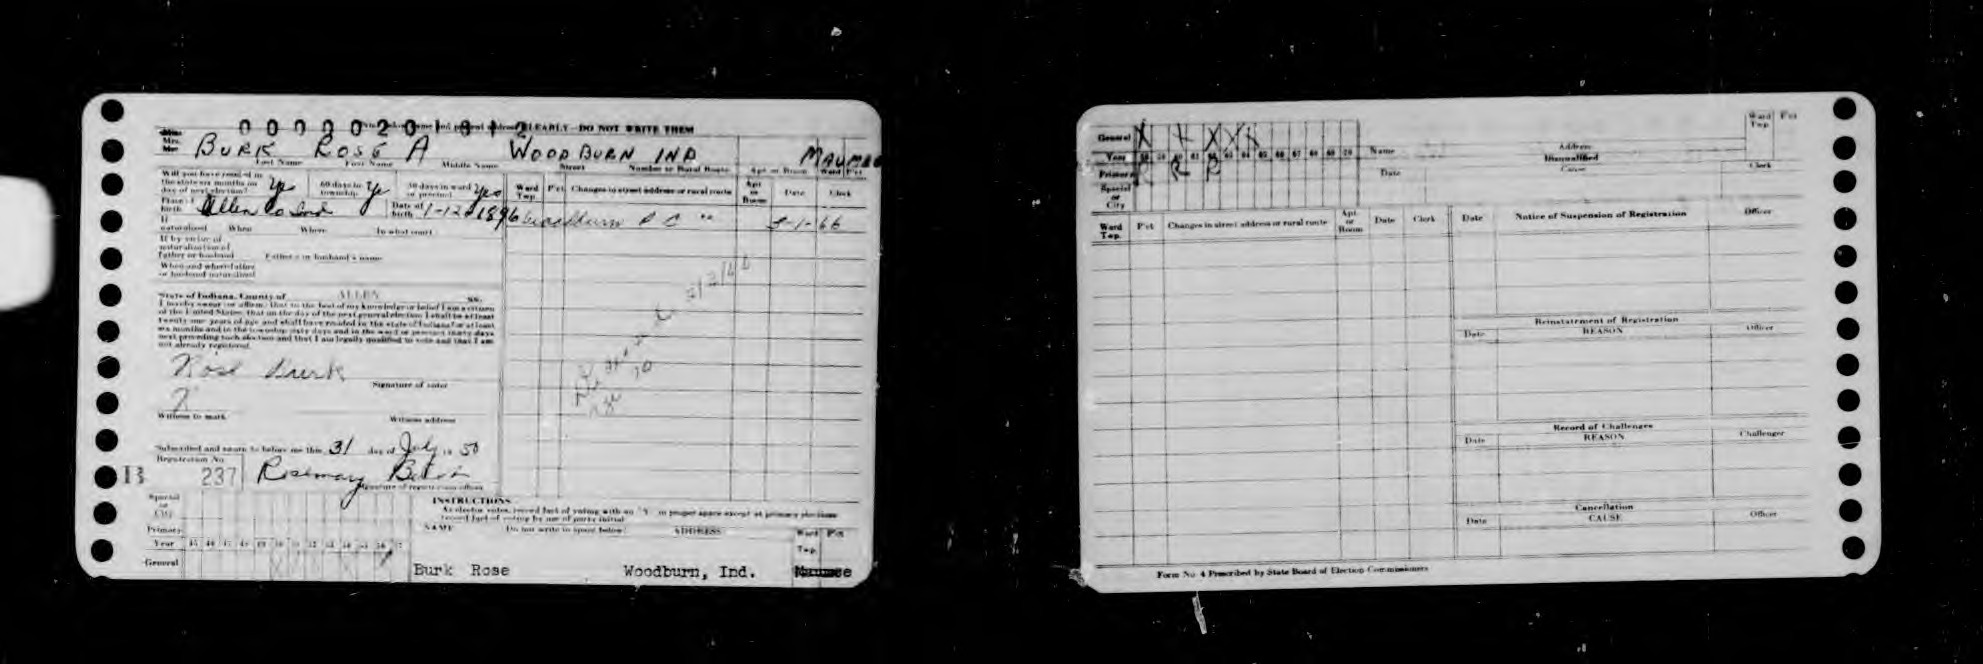 0 0 0 0 0 2 0 1 8 1 2
CLEARLY - DO NOT WRITE THEM
Miss
Mrs.
Mr.
BURK ROSE A WOODBURN IND MAUMEE
Last Name First Name Middle Name Street Number or Rural Route Apt. or Room Ward P'ct
Will you have resided in
the state six months on
day of next election? Yes 60 days in
township Yes 30 days in ward
or precinct yes
Ward
Twp P'ct Changes in street address or rural route Apt
or
Room Date Clerk
Place of
birth Allen Co Ind Date of
birth 1-12-1896
Woodburn 3-1-66
If
naturalized When Where In what court
If by virtue of
naturalization of
father or husband Father's or husband's name
When and where father
or husband naturalized
State of Indiana, County of ALLEN ss.
I hereby swear (or affirm) that to the best of my knowledge or belief I am a citizen
of the United States, that on the day of the next general election I shall be at least
twenty-one years of age and shall have resided in the state of Indiana for at least
six months and in the township sixty days and in the ward or precinct thirty days
next preceding such election and that I am legally qualified to vote and that I am
not already registered.
Rose Burk
Signature of voter
X
Witness to mark Witness address
Subscribed and sworn to before me this 31 day of July 19 50
Registration No.
B 237 Rosemary
Signature of registration officer
Special
or
City
INSTRUCTIONS
As elector votes, record fact of voting with an "X" in proper space except at primary elections
record fact of voting by use of party initial
Primary
NAME Do not write in space below! ADDRESS Ward
Twp. P'ct
Year 45 46 47 48 49 50 51 52 53 54 55 56 57
General
Burk Rose Woodburn, Ind. Maumee
General X X X X X
Year 58 59 60 61 62 63 64 65 66 67 68 69 70
Primary R R R
Special
or
City
Name Address Ward
Twp P'ct
Disqualified
Date Cause Clerk
Ward
Twp. P'ct Changes in street address or rural route Apt.
or
Room Date Clerk
Date Notice of Suspension of Registration Officer
Reinstatement of Registration
Date REASON Officer
Record of Challenges
Date REASON Challenger
Cancellation
Date CAUSE Officer
Form No. 4 Prescribed by State Board of Election Commissioners